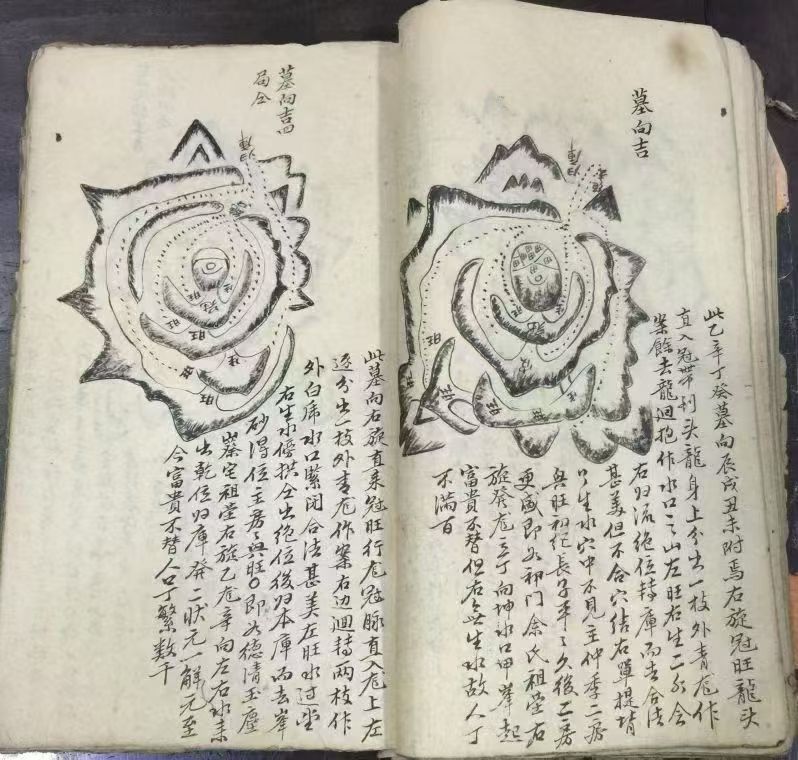 墓向吉
此乙辛丁癸墓向辰戌丑未附焉右旋冠旺龍头
直入冠带到头龍身上分出一枝外青龙作
案餘去龍迴抱作水口之山左旺右生二水会
右归流绝位转庫而去合法
甚美但不合穴结右單提
生水穴中不見主仲季二房
興旺初纪長子平之久後二房
更盛即如祁门余氏祖茔右
旋癸龙立丁向坤水口甲峯起
富貴不替但右無生水故人丁
不满百
旺
旺
旺
墓向吉四
局仝
此墓向右旋直来冠旺行龙冠脉直入龙上左
逐分出一枝外青龙作案右边迴转两枝作
外白虎水口緊闭合法甚美左旺水过堂
右生水拱仝出绝位後归本庫而去峯
砂得位主房之興旺〇即如德清玉塵
蔡宅祖茔右旋乙龙辛向左右水来
出乾位归庫發二状元一解元至
今富貴不替人口丁繁数千
旺
旺
旺